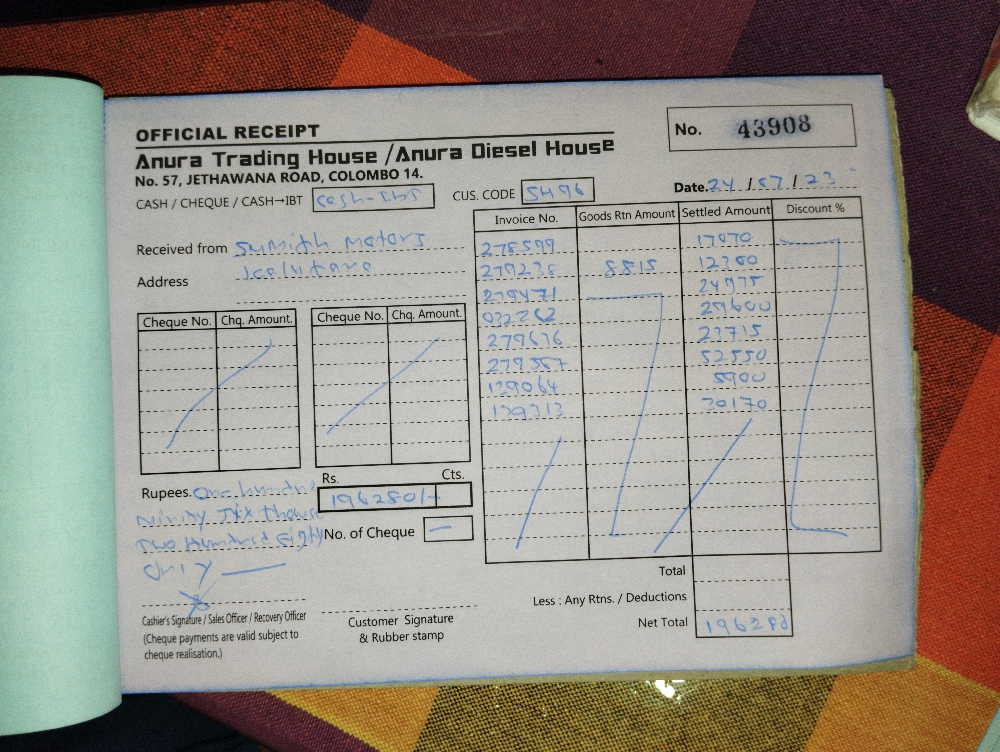 OFFICIAL RECEIPT
No. 43908
Anura Trading House /Anura Diesel House
No. 57, JETHAWANA ROAD, COLOMBO 14.
CASH / CHEQUE / CASH→IBT cash-IBT
CUS. CODE 5496
Date. 24 / 07 / 23
Received from Sumith Motors
Address Kalutara
Invoice No. Goods Rtn Amount Settled Amount Discount %
278599 17970
279238 8815 12300
279471 24975
032262 29600
279636
279557 52550
139064 5900
139313
Cheque No. Chq. Amount. Cheque No. Chq. Amount.
Rs. Cts.
196280/-
Rupees. One hundred
Ninity Six Thous
Two Hundred Eighty
Only
No. of Cheque –
Total
Less : Any Rtns. / Deductions
Net Total 196280
Cashier's Signature / Sales Officer / Recovery Officer
(Cheque payments are valid subject to
cheque realisation.)
Customer Signature
& Rubber stamp